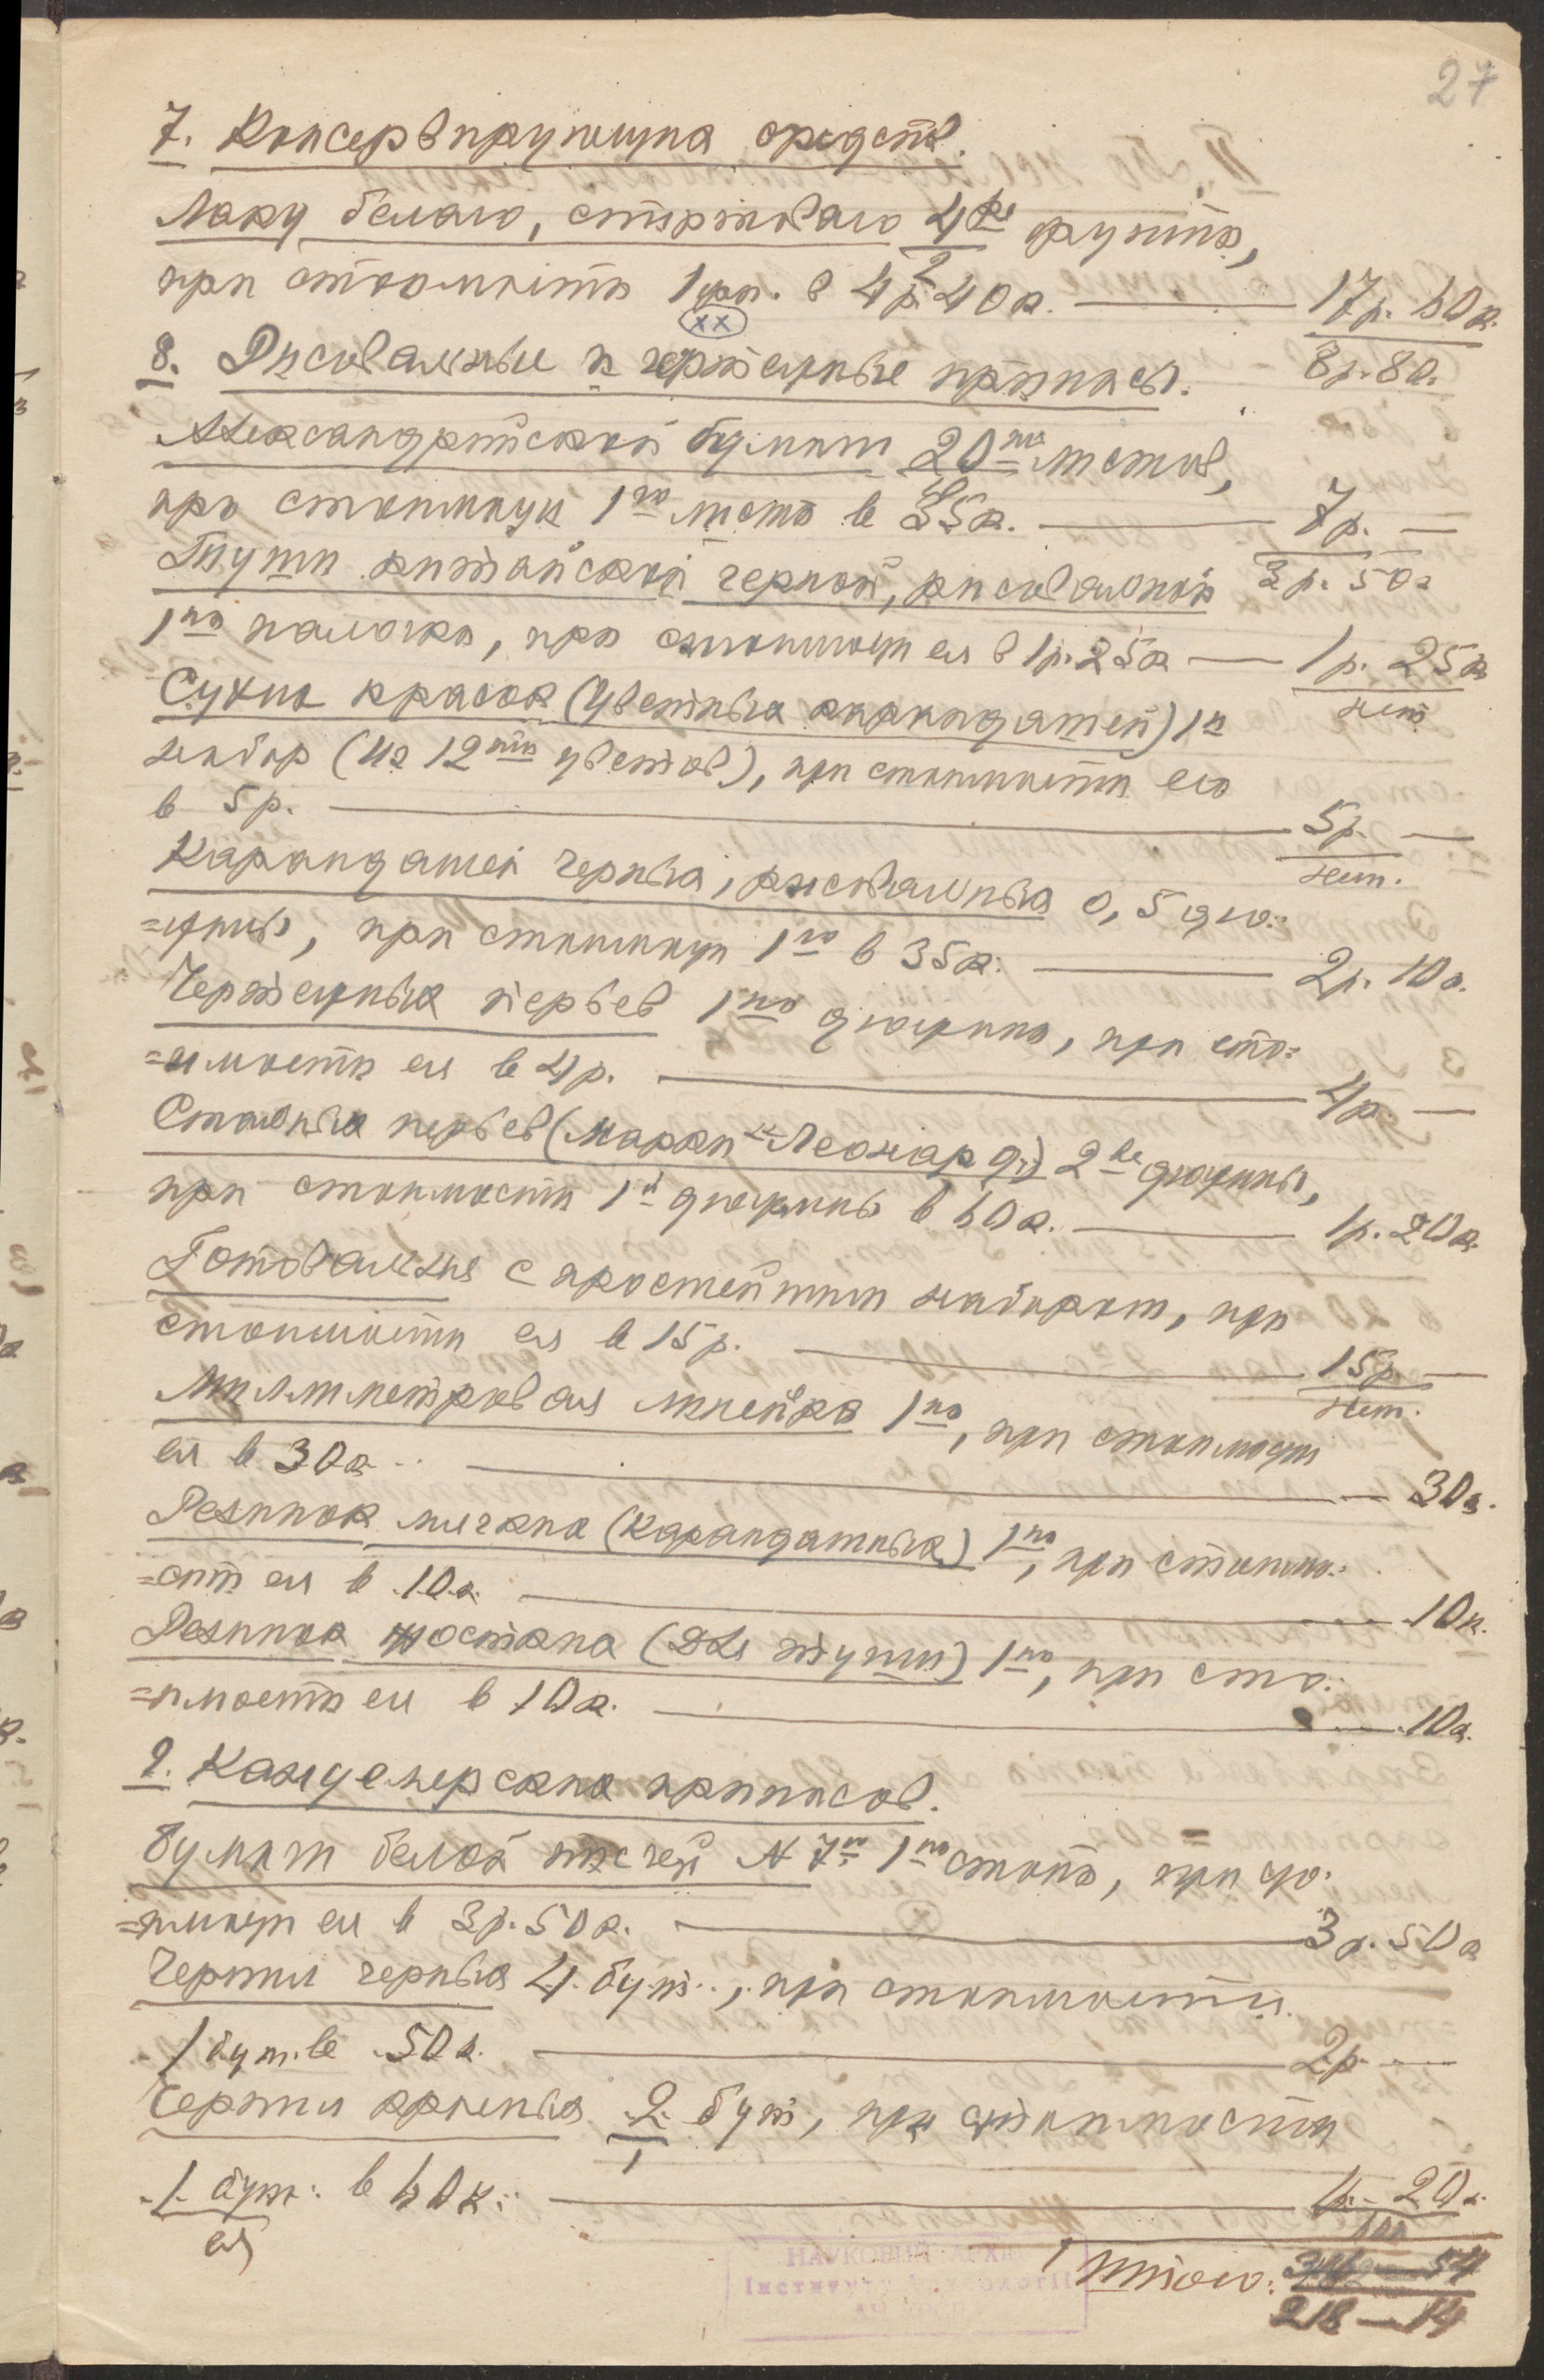 27
7. Консервирующих средств.
Лаку белаго, спиртоваго 4ре фунта,
2
при стоимости 1 фн. в 4р. 40к. — 17р. 60к.
(хх) 8р. 80.
8. Рисовальные и чертежные припасы.
Александрийской бумаги 20ть листов,
при стоимости 1го листа в 35к. — 7р. —
3р. 50к
Туши китайской черной, рисовальной
1на палочка, при стоимости ея в 1р. 25к — 1р. 25к
нет
Сухих красок (цветных карандашей) 1н
набор (из 12ти цветов), при стоимости его
в 5р. — 5р. —
нет.
Карандашей черных, рисовальных 0,5 дю=
=жины, при стоимости 1го в 35к. — 2р. 10к.
Чертежных перьев 1на дюжина, при сто=
=имости ея в 4р. — 4р. —
Стальных перьев (марки "Леонардъ") 2ве дюжины,
при стоимости 1й дюжины в 60к. — 1р. 20к.
Готовальня с простейшим набором, при
стоимости ея в 15р. — 15р. —
нет.
Миллиметровая линейка 1на, при стоимости
ея в 30к. — 30к.
Резинок мягких (карандашных) 1на, при стоимо=
=сти ея в 10к. — 10к.
Резинок жостких (для туши) 1на, при сто=
=имости ея в 10к. — 10к.
9. Канцелярских припасов.
Бумаги белой писчей N 7й 1на стопа, при
=имости ея в 3р. 50к. — 3р. 50к
Чернил черных 4 бут., при стоимости
1 бут. в 50к. — 2р. —
Чернил красных 2 бут, при стоимости
1
1 бут. в 60к. — 1р. 20к.
ея 60к
Итого: 54
218 — 14
НАУКОВИЙ АРХІВ
Інституту Археології
АН УРСР